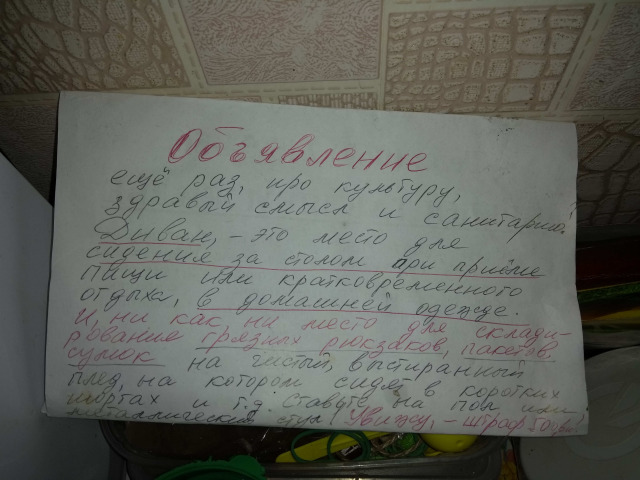 Объявление
ещё раз, про культуру,
здравый смысл и санитарию.
Диван, - это место для
сидения за столом при приёме
пищи или кратковременного
отдыха, в домашней одежде.
И, ни как, ни место для склади-
рования грязных рюкзаков, пакетов,
сумок на чистый, выстиранный
плед, на котором сидят в коротких
шортах и т.д. Ставьте на пол или
металлический стул. Увижу, - штраф